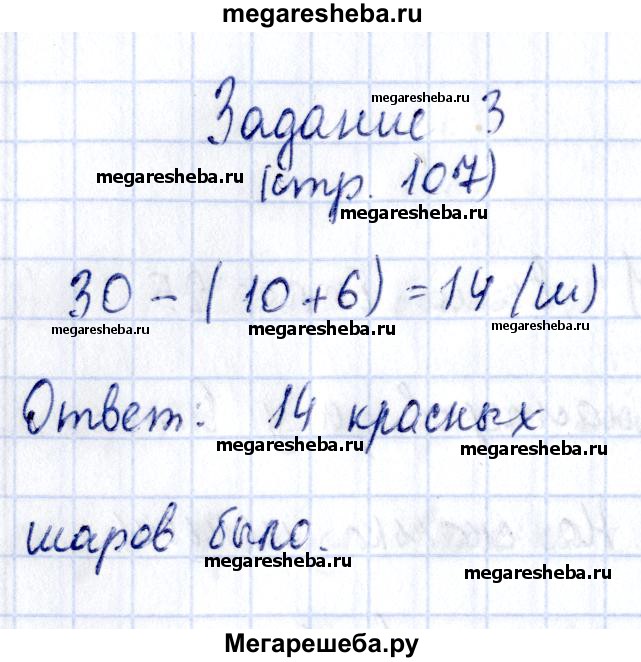 megaresheba.ru
Задание 3
megaresheba.ru
(стр. 107)
megaresheba.ru
megaresheba.ru
30 - (10+6) = 14 (ш)
megaresheba.ru megaresheba.ru megaresheba.ru
Ответ: 14 красных
megaresheba.ru megaresheba.ru
шаров было.
megaresheba.ru megaresheba.ru
Мегарешеба.ру